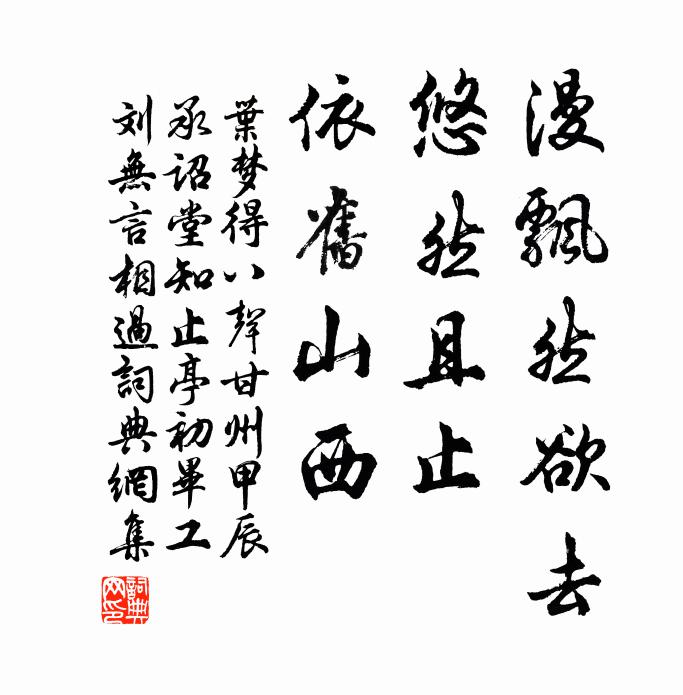 漫飄然欲去
悠然且止
依舊山西
葉梦得八聲甘州甲辰
承詔堂知止亭初畢工
刘無言相過詞典網集
詞典网印